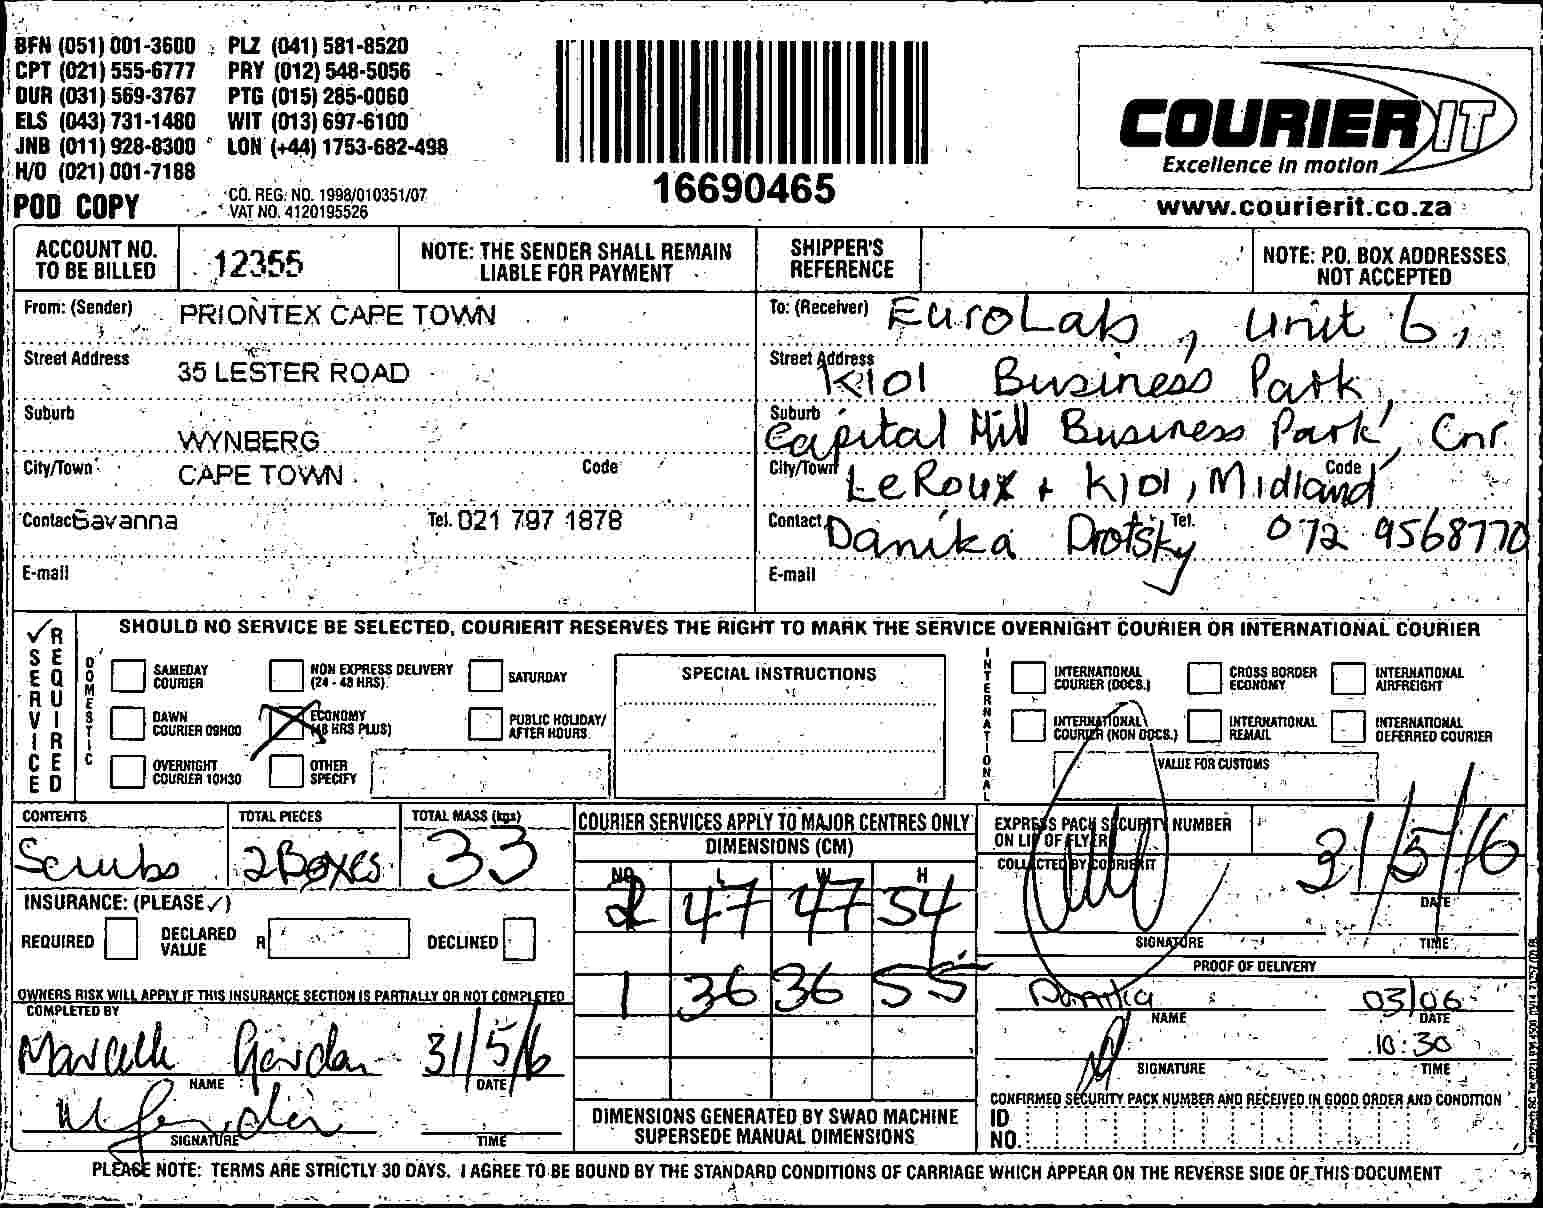 BFN (051) 001-3600 PLZ (041) 581-8520
CPT (021) 555-6777 PRY (012) 548-5056
DUR (031) 569-3767 PTG (015) 285-0060
ELS (043) 731-1480 WIT (013) 697-6100
JNB (011) 928-8300 LON (+44) 1753-682-498
H/O (021) 001-7188
POD COPY
CO. REG. NO. 1998/010351/07
VAT NO. 4120195526
16690465
COURIER IT
Excellence in motion
www.courierit.co.za
ACCOUNT NO. TO BE BILLED
12355
NOTE: THE SENDER SHALL REMAIN LIABLE FOR PAYMENT
SHIPPER'S REFERENCE
NOTE: P.O. BOX ADDRESSES NOT ACCEPTED
From: (Sender) PRIONTEX CAPE TOWN
Street Address 35 LESTER ROAD
Suburb WYNBERG
City/Town CAPE TOWN Code
Contact Savanna Tel. 021 797 1878
E-mail
To: (Receiver) EuroLab, Unit 6,
Street Address K101 Business Park,
Suburb Capital Hill Business Park, Cnr
City/Town LeRoux + K101, Midland Code
Contact Danika Drotsky Tel. 072 9568770
E-mail
✓ SERVICE REQUIRED
SHOULD NO SERVICE BE SELECTED, COURIERIT RESERVES THE RIGHT TO MARK THE SERVICE OVERNIGHT COURIER OR INTERNATIONAL COURIER
DOMESTIC
SAMEDAY COURIER
NON EXPRESS DELIVERY (24 - 48 HRS)
SATURDAY
DAWN COURIER 09H00
ECONOMY (48 HRS PLUS)
PUBLIC HOLIDAY/ AFTER HOURS
OVERNIGHT COURIER 10H30
OTHER SPECIFY
SPECIAL INSTRUCTIONS
INTERNATIONAL
INTERNATIONAL COURIER (DOCS.)
CROSS BORDER ECONOMY
INTERNATIONAL AIRFREIGHT
INTERNATIONAL COURIER (NON DOCS.)
INTERNATIONAL REMAIL
INTERNATIONAL DEFERRED COURIER
VALUE FOR CUSTOMS
CONTENTS
Scrubs
TOTAL PIECES
2 Boxes
TOTAL MASS (kgs)
33
INSURANCE: (PLEASE ✓)
REQUIRED DECLARED VALUE R DECLINED
OWNERS RISK WILL APPLY IF THIS INSURANCE SECTION IS PARTIALLY OR NOT COMPLETED
COMPLETED BY
31/5/16
NAME DATE
SIGNATURE TIME
COURIER SERVICES APPLY TO MAJOR CENTRES ONLY
DIMENSIONS (CM)
NO. L W H
2 47 47 54
1 36 36 55
DIMENSIONS GENERATED BY SWAD MACHINE SUPERSEDE MANUAL DIMENSIONS
EXPRESS PACK SECURITY NUMBER ON LIP OF FLYER
COLLECTED BY COURIERIT
31/5/16
DATE
SIGNATURE TIME
PROOF OF DELIVERY
Danika 03/06
NAME DATE
10:30
SIGNATURE TIME
CONFIRMED SECURITY PACK NUMBER AND RECEIVED IN GOOD ORDER AND CONDITION
ID NO.
PLEASE NOTE: TERMS ARE STRICTLY 30 DAYS. I AGREE TO BE BOUND BY THE STANDARD CONDITIONS OF CARRIAGE WHICH APPEAR ON THE REVERSE SIDE OF THIS DOCUMENT